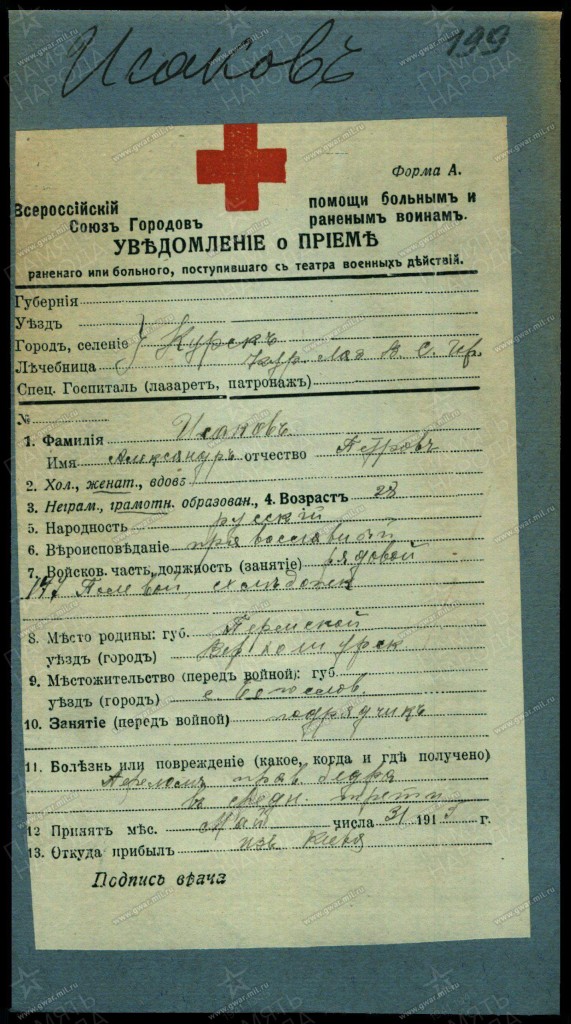 Исаковъ
199
Форма А.
Всероссійскій Союзъ Городовъ
помощи больнымъ и раненымъ воинамъ.
УВѢДОМЛЕНІЕ о ПРІЕМѢ
раненаго или больного, поступившаго съ театра военныхъ дѣйствій.
Губернія
Уѣздъ
Городъ, селеніе Курскъ
Лѣчебница
Спец. Госпиталь (лазаретъ, патронажъ)
№
1. Фамилія Исаковъ
Имя Александръ отчество Петровъ
2. Хол., женат., вдовъ
3. Неграм., грамотн. образован., 4. Возрастъ 28
5. Народность русскій
6. Вѣроисповѣданіе православный
7. Войсков. часть, должность (занятіе) рядовой
Полевой
8. Мѣсто родины: губ. Пермской
уѣздъ (городъ)
9. Мѣстожительство (передъ войной): губ.
уѣздъ (городъ) с. Богослов.
10. Занятіе (передъ войной) подрядчикъ
11. Болѣзнь или поврежденіе (какое, когда и гдѣ получено)
прав бедра
въ средн. трети
12 Принятъ мѣс. Май числа 31 1915 г.
13. Откуда прибылъ изъ Кіева
Подпись врача